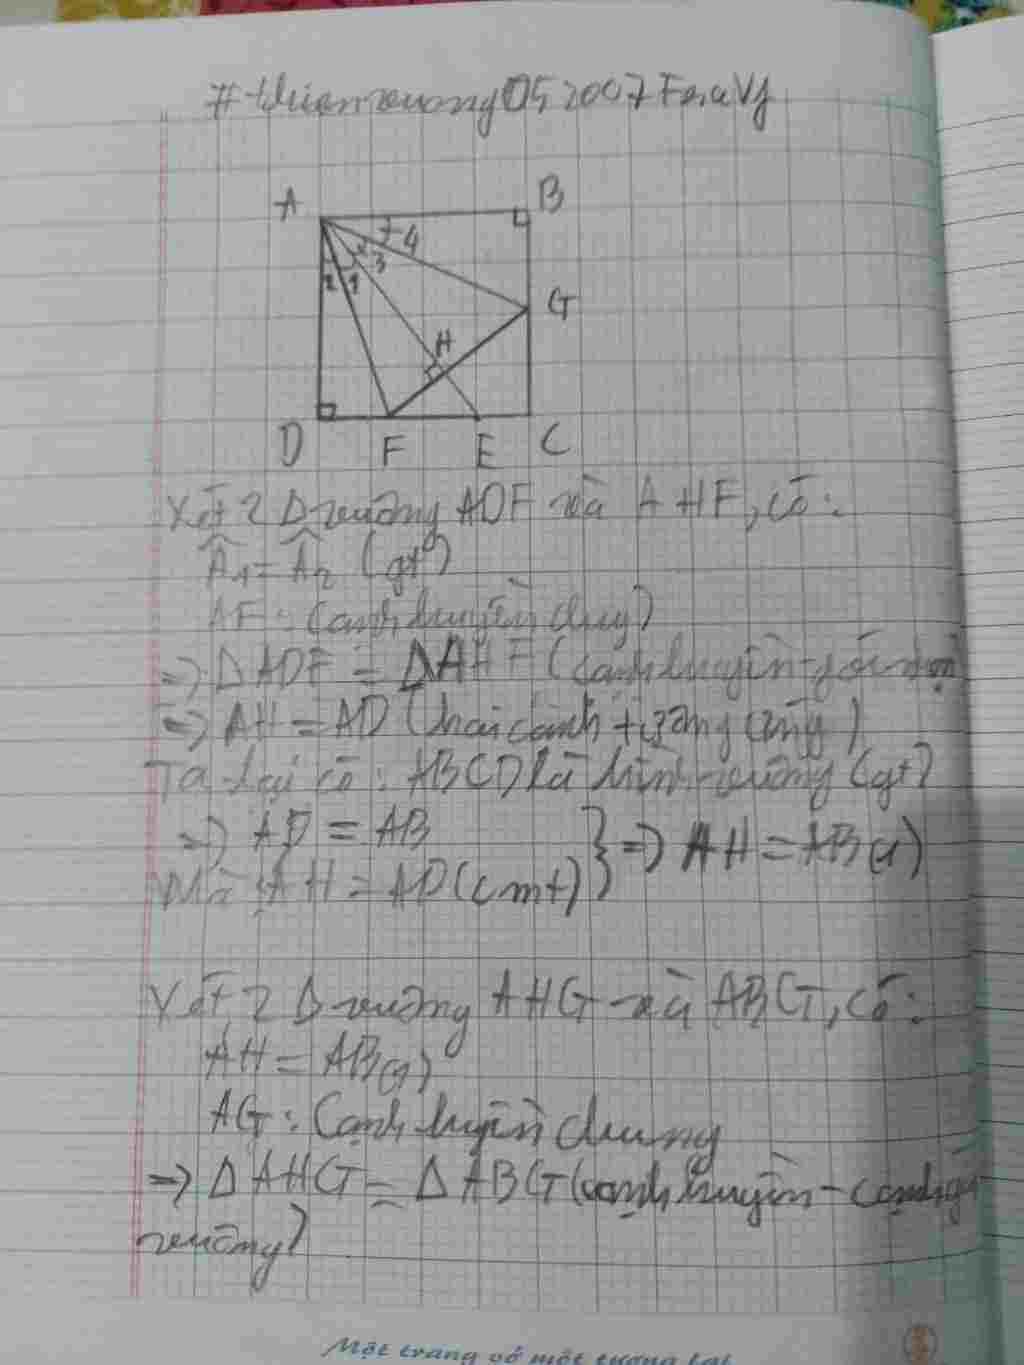 A
B
4
3
2 1
G
H
D F E C
Xét 2 Δ vuông ADF và AHF, có:
A1 = A2 (gt)
AF: Cạnh huyền chung
=> Δ ADF = Δ AHF (cạnh huyền - góc nhọn
=> AH = AD (hai cạnh tương ứng)
Ta lại có: ABCD là hình vuông (gt)
=> AD = AB
} => AH = AB (1)
Mà AH = AD (cmt)
Xét 2 Δ vuông AHG và ABG, có:
AH = AB (1)
AG: Cạnh huyền chung
=> Δ AHG = Δ ABG (cạnh huyền - cạnh góc
vuông)
Một trang vở một tương lai